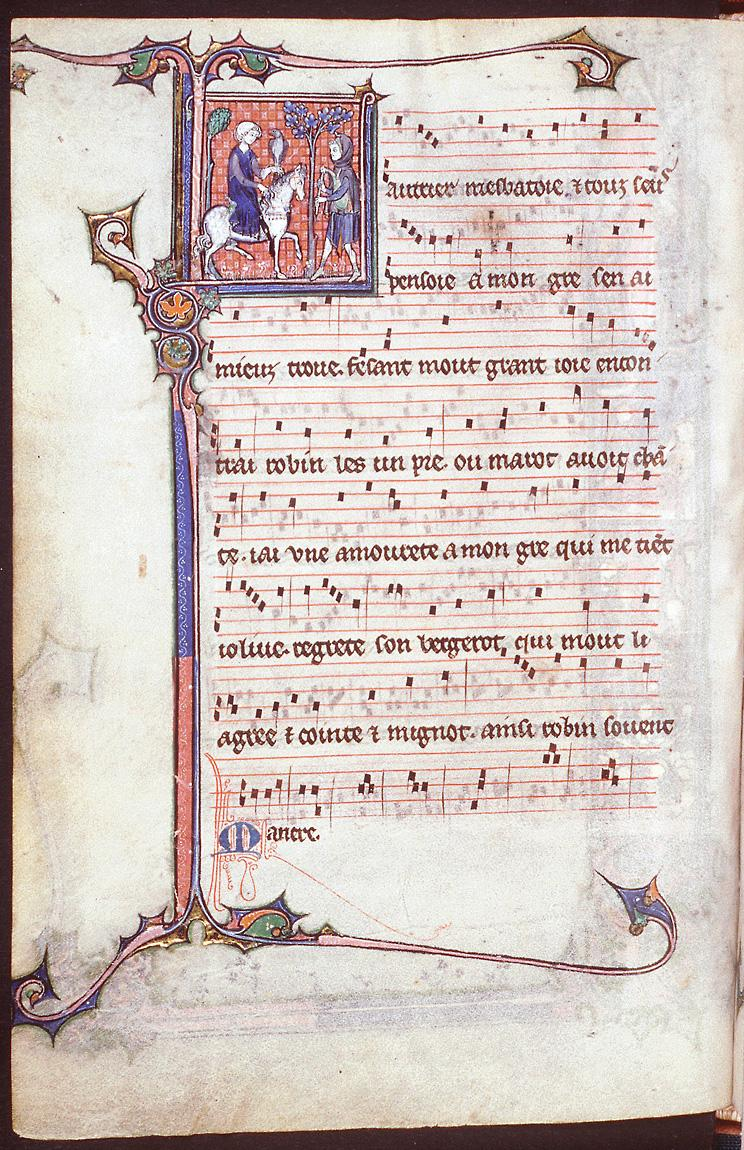 autrier mesbatoie. ⁊ touz seus
pensoie a mon gre sen ai
mieuz troue. fesant mout grant ioie encon
trai robin les un pre. ou marot auoit chā
te. iai vne amourete a mon gre qui me tiēt
ioliue. regrete son bergerot, qui mout li
agree ⁊ cointe ⁊ mignot. ainsi robin souent
Manere.